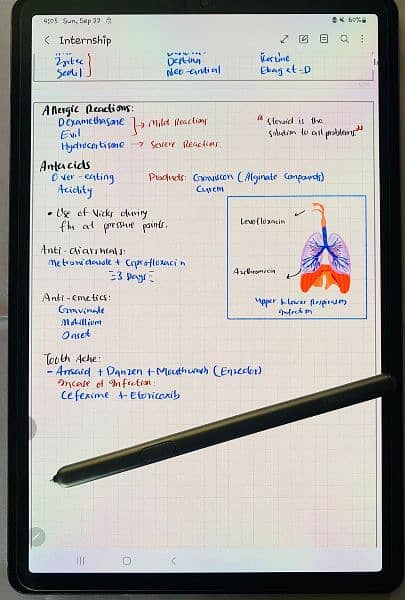 4:05 Sun, Sep 22
60%
Internship
Zyrtec
Neo-antial
Ebaget-D
Allergic Reactions:
Dexamethasone
Evil
Mild Reactions
Hydrocortisone → Severe Reactions.
"Steroid is the
solution to all problems"
Antacids
Over-eating
Acidity
Products: Gaviscon (Alginate Compounds)
• Use of Vicks during
flu at pressure points.
Levofloxacin
Azithromicin
Upper & Lower Respiratory
infection
Anti-diarrheals:
Metronidazole + Ciprofloxacin
3 Days
Anti-emetics:
Gravinate
Motillium
Onset
Tooth Ache:
- Ansaid + Danzen + Mouthwash (Enzeclor)
Incase of Infection:
Cefexime + Etoricoxib